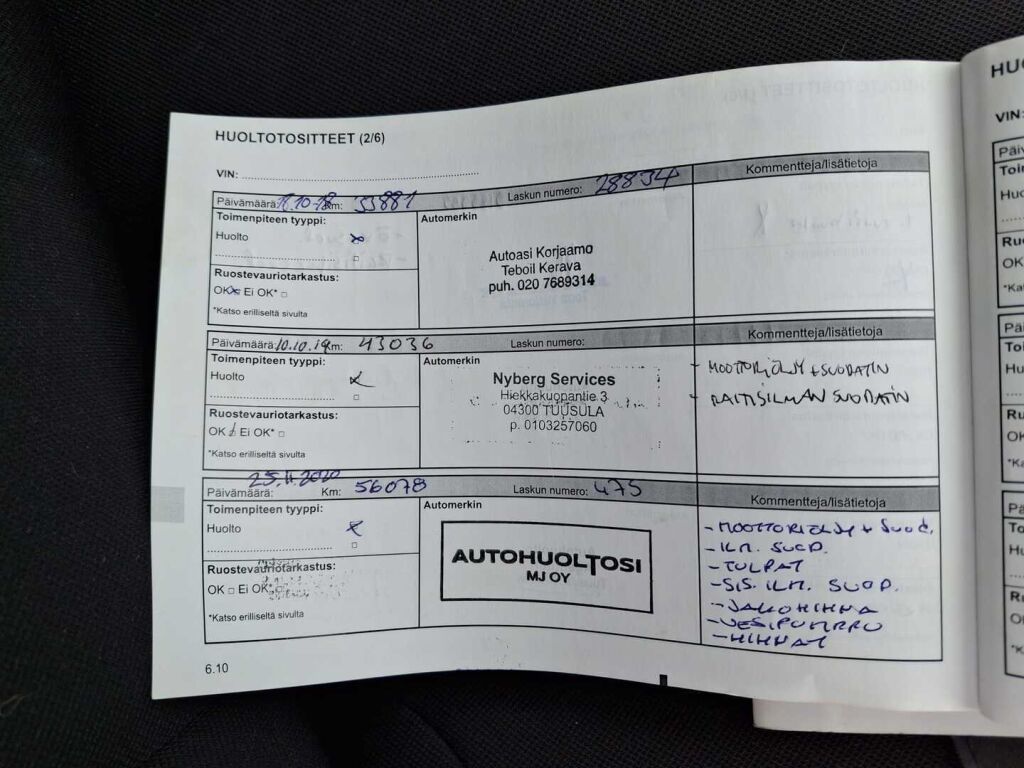 HUOLTOTOSITTEET (2/6)
VIN:
Päivämäärä: 18.10.18 Km: 33881 Laskun numero: 28834 Kommentteja/lisätietoja
Toimenpiteen tyyppi: Automerkin
Huolto
Autoasi Korjaamo
Teboil Kerava
puh. 020 7689314
Ruostevauriotarkastus:
OK Ei OK*
*Katso erilliseltä sivulta
Päivämäärä: 10.10.19 Km: 43036 Laskun numero: Kommentteja/lisätietoja
Toimenpiteen tyyppi: Automerkin
Huolto
Nyberg Services
Hiekkakuopantie 3
04300 TUUSULA
p. 0103257060
- MOOTTORIÖLJY + SUODATIN
- RAITISILMAN SUODATIN
Ruostevauriotarkastus:
OK Ei OK*
*Katso erilliseltä sivulta
Päivämäärä: 25.11.2020 Km: 56078 Laskun numero: 475 Kommentteja/lisätietoja
Toimenpiteen tyyppi: Automerkin
Huolto
AUTOHUOLTOSI
MJ OY
- MOOTTORIÖLJY + SUOD.
- ILM. SUOD.
- TULPAT
- SIS. ILM. SUOD.
- JAKOHIHNA
- VESIPUMPPU
- HIHNAT
Ruostevauriotarkastus:
OK Ei OK*
*Katso erilliseltä sivulta
6.10
HUO
VIN:
Päiv
Toim
Huo
Ruo
OK
*Kats